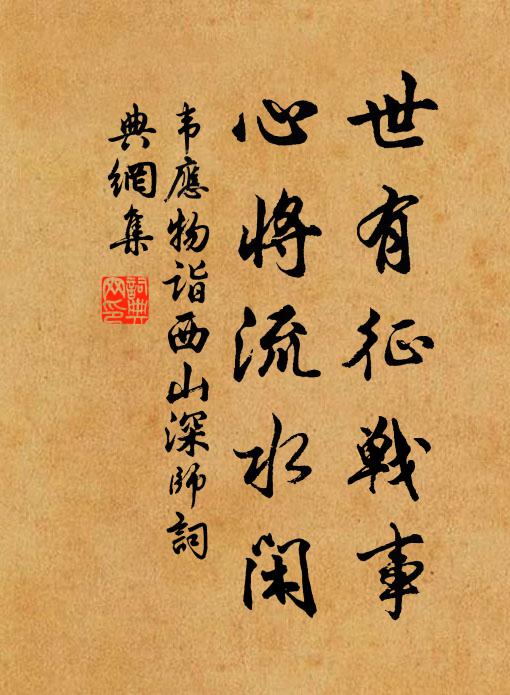 世有征戰事
心將流水閑
韦應物詣西山深師詞
典網集
詞典網印